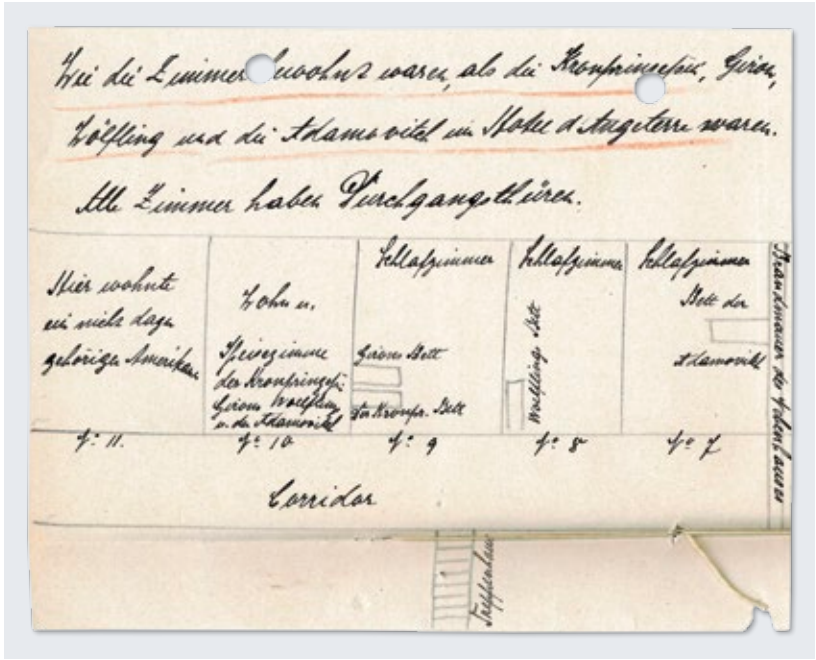 Wie die Zimmer bewohnt waren, als die Kronprinzessin, Giron,
Wölfling und die Adamovitch im Hotel d'Angleterre waren.
Alle Zimmer haben Durchgangsthüren.
Hier wohnte
ein nicht dazu
gehöriger Amerikaner
Wohn u.
Speisezimmer
der Kronprinzessin
Girons Woelfling
u. der Adamovitch
Schlafzimmer
Girons Bett
der Kronpr. Bett
Schlafzimmer
Woelflings Bett
Schlafzimmer
Bett der
Adamovitch
Brandmauer des Nebenhauses
No 11.
No 10
No 9
No 8
No 7
Corridor
Treppenhaus